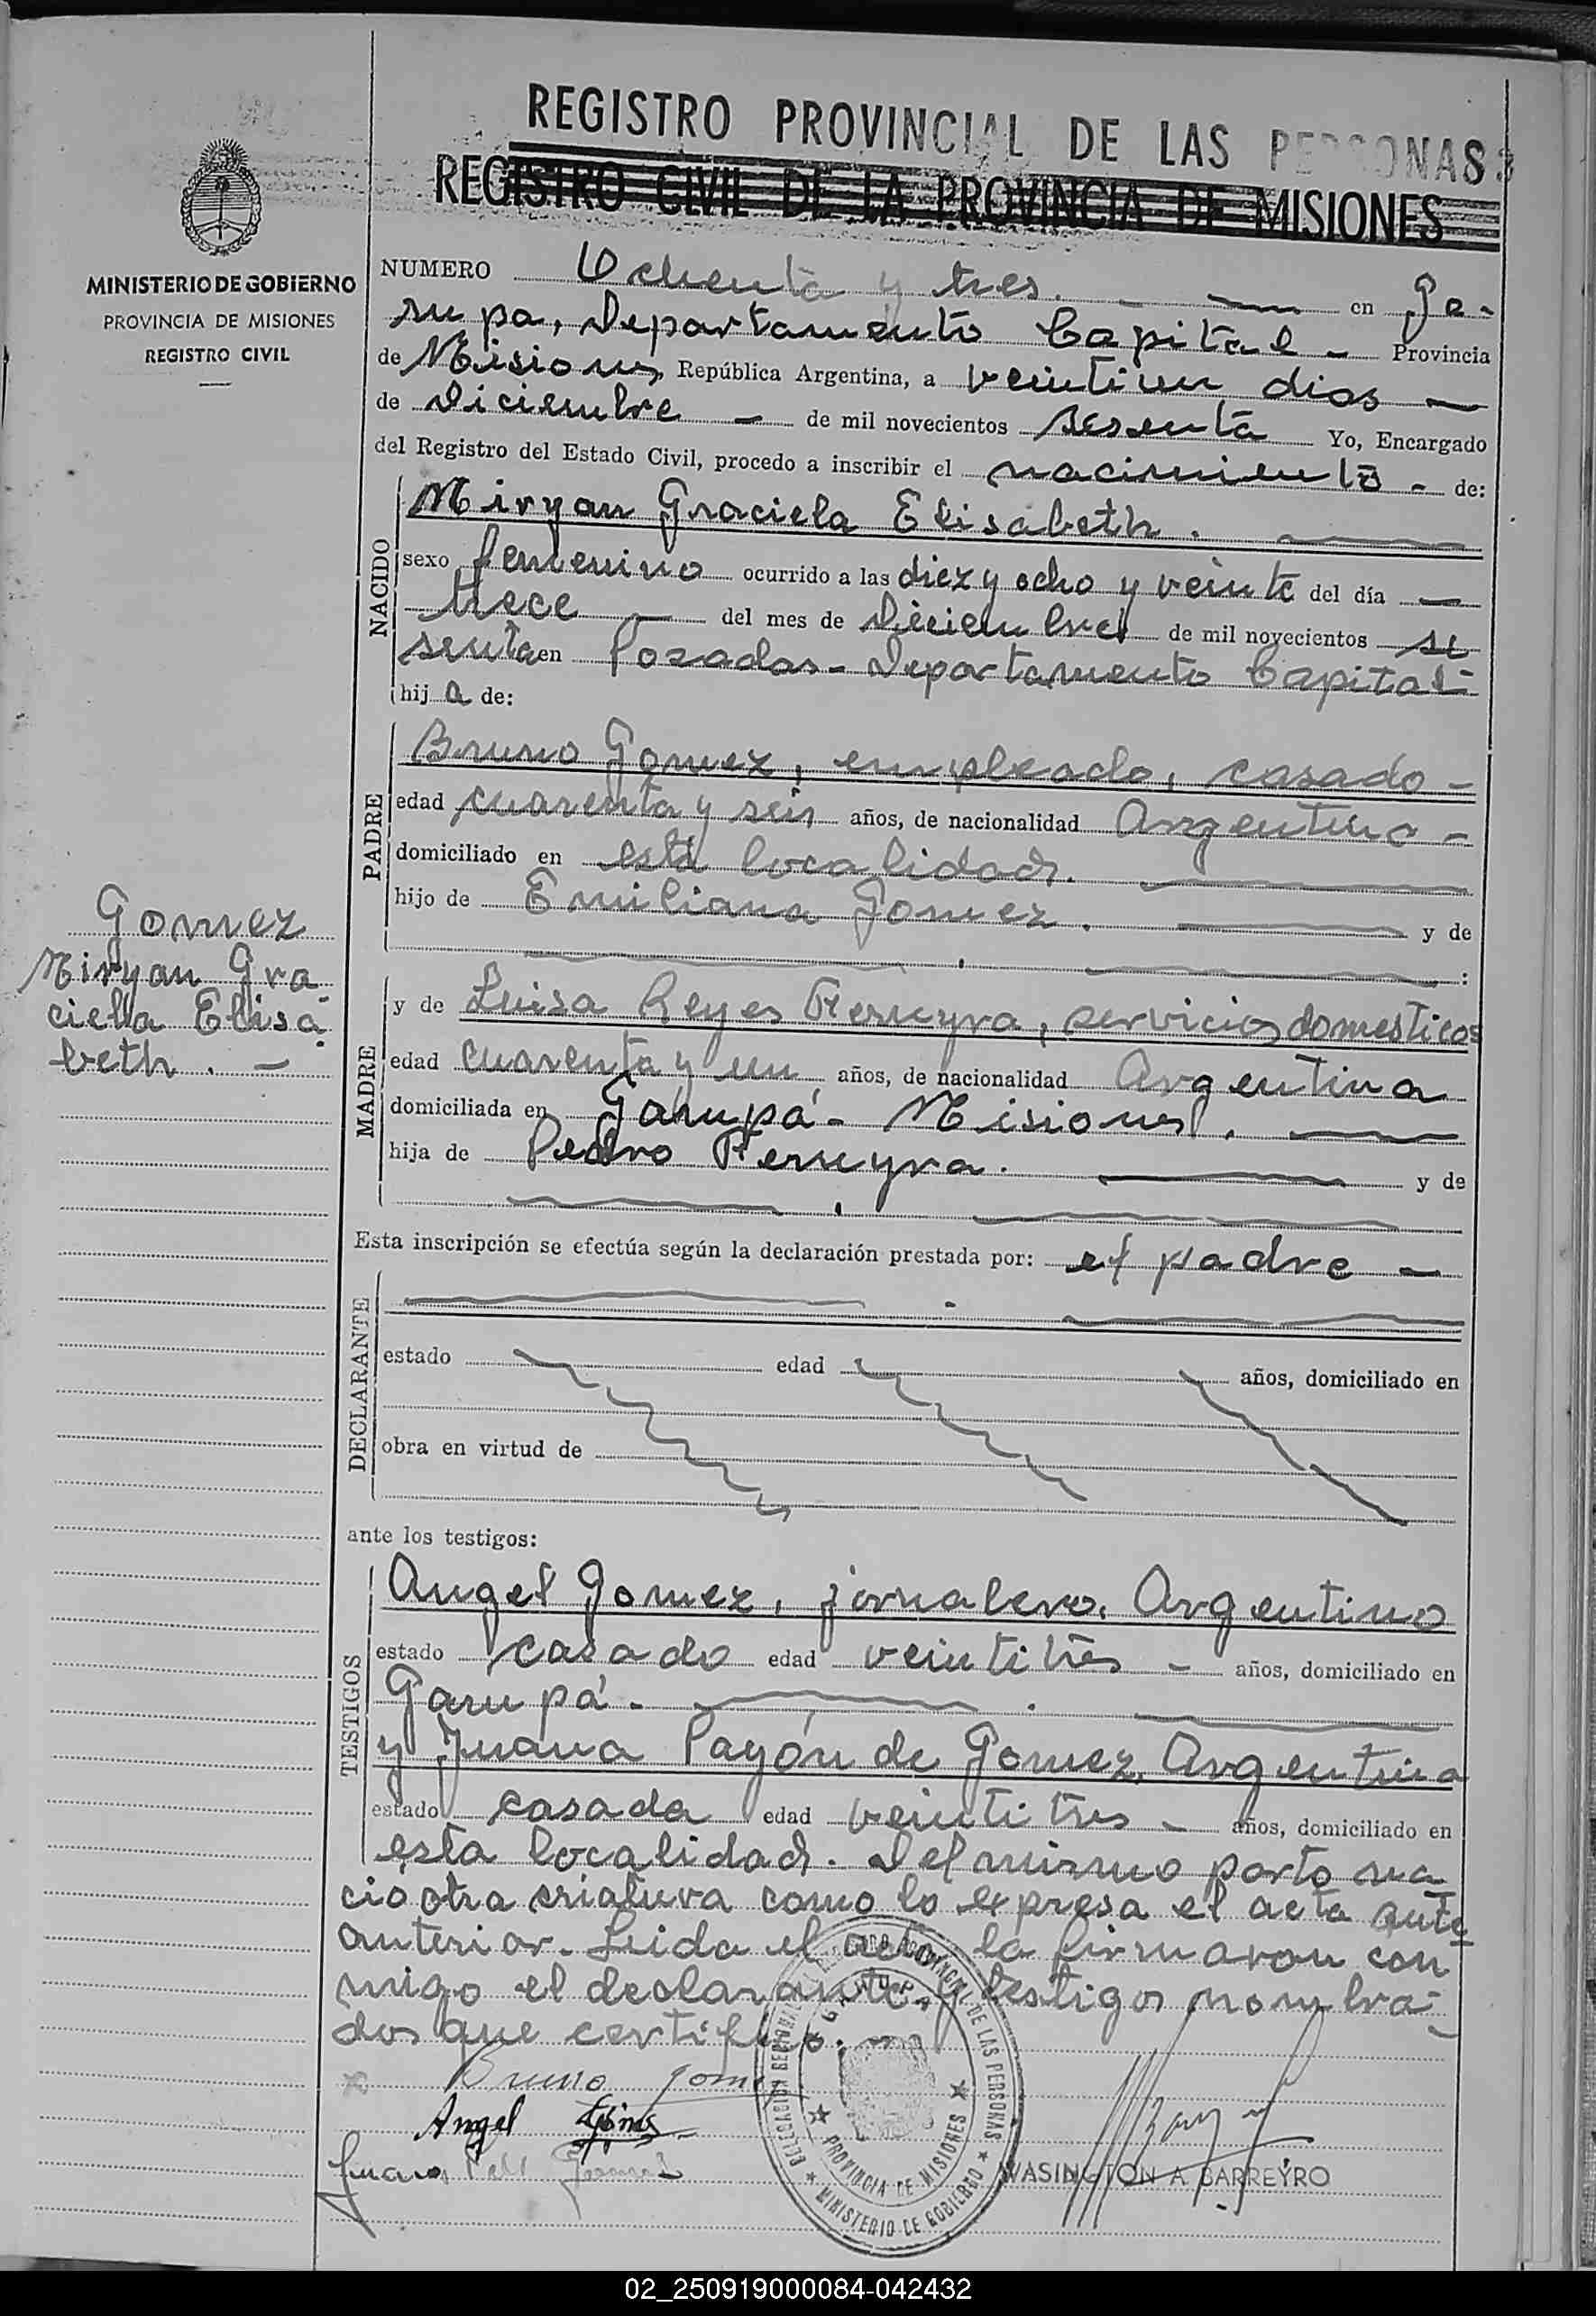 REGISTRO PROVINCIAL DE LAS PERSONAS
REGISTRO CIVIL DE LA PROVINCIA DE MISIONES
MINISTERIO DE GOBIERNO
PROVINCIA DE MISIONES
REGISTRO CIVIL
NUMERO Ochenta y tres. - — en Ga-
rupa, Departamento Capital - Provincia
de Misiones República Argentina, a veintiun dias —
de Diciembre - de mil novecientos sesenta Yo, Encargado
del Registro del Estado Civil, procedo a inscribir el nacimiento - de:
NACIDO
Miryan Graciela Elisabeth. —
sexo femenino ocurrido a las diez y ocho y veinte del día —
trece — del mes de Diciembre de mil novecientos se
senta en Posadas - Departamento Capital-
hij a de:
PADRE
Bruno Gomez, empleado, casado -
edad cuarenta y seis años, de nacionalidad Argentino -
domiciliado en esta localidad. —
hijo de Emiliana Gomez. — y de
— . — :
Gomez
Miryan Gra
ciella Elisa
beth. -
MADRE
y de Luisa Reyes Ferreyra, servicios domesticos
edad cuarenta y un años, de nacionalidad Argentina
domiciliada en Garupá - Misiones. —
hija de Pedro Ferreyra. — y de
— . —
Esta inscripción se efectúa según la declaración prestada por: el padre —
— . —
DECLARANTE
estado edad años, domiciliado en
obra en virtud de
ante los testigos:
TESTIGOS
Angel Gomez, jornalero, Argentino
estado casado edad veintitres - años, domiciliado en
Garupá. — . —
y Juana Payón de Gomez, Argentina
estado casada edad veintitres - años, domiciliado en
esta localidad. Del mismo parto na
cio otra criatura como lo expresa el acta ante
anterior. Leida el acta, la firmaron con
migo el declarante y testigos nombra-
dos que certifico. —
Bruno Gomez
Angel
Juana
WASINGTON A BARREYRO
DELEGACION SECCIONAL REGISTRO PROVINCIAL DE LAS PERSONAS
GARUPA
PROVINCIA DE MISIONES
MINISTERIO DE GOBIERNO
02_250919000084-042432